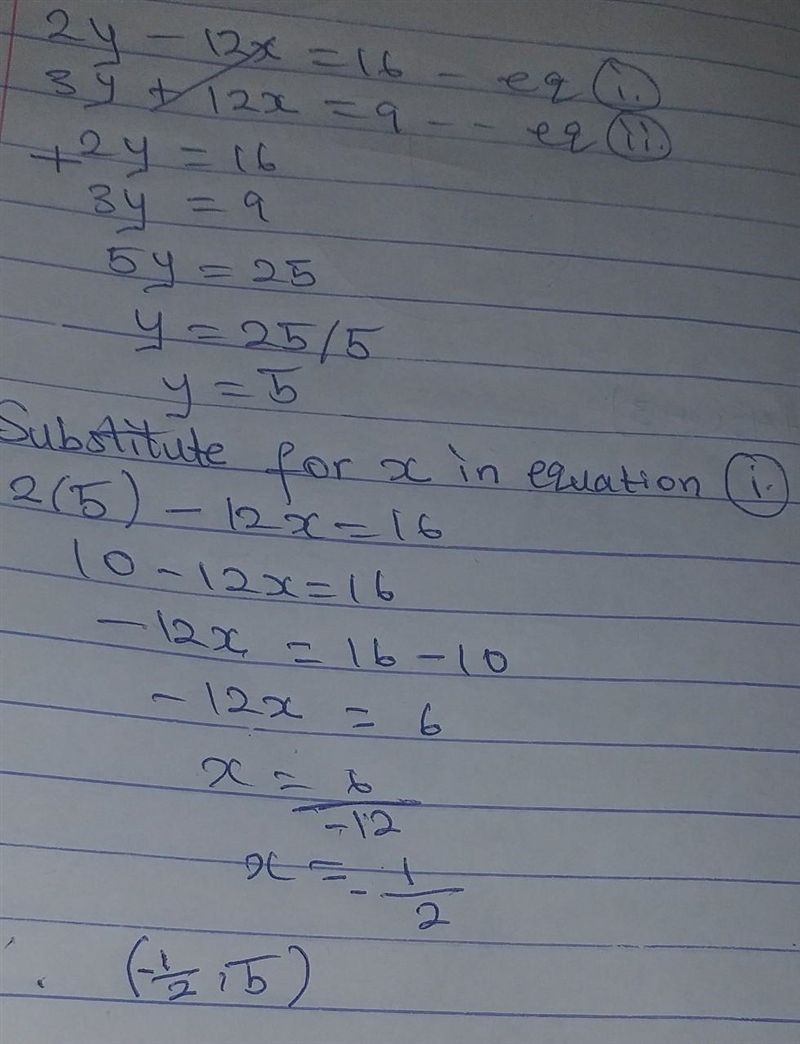 2y - 12x = 16 - eq (i.)
3y + 12x = 9 -- eq (ii.)
+2y = 16
3y = 9
5y = 25
y = 25/5
y = 5
Substitute for x in equation (i.)
2(5) - 12x = 16
10 - 12x = 16
-12x = 16 - 10
-12x = 6
x = 6
-12
x = -1
2
∴ (-1/2, 5)